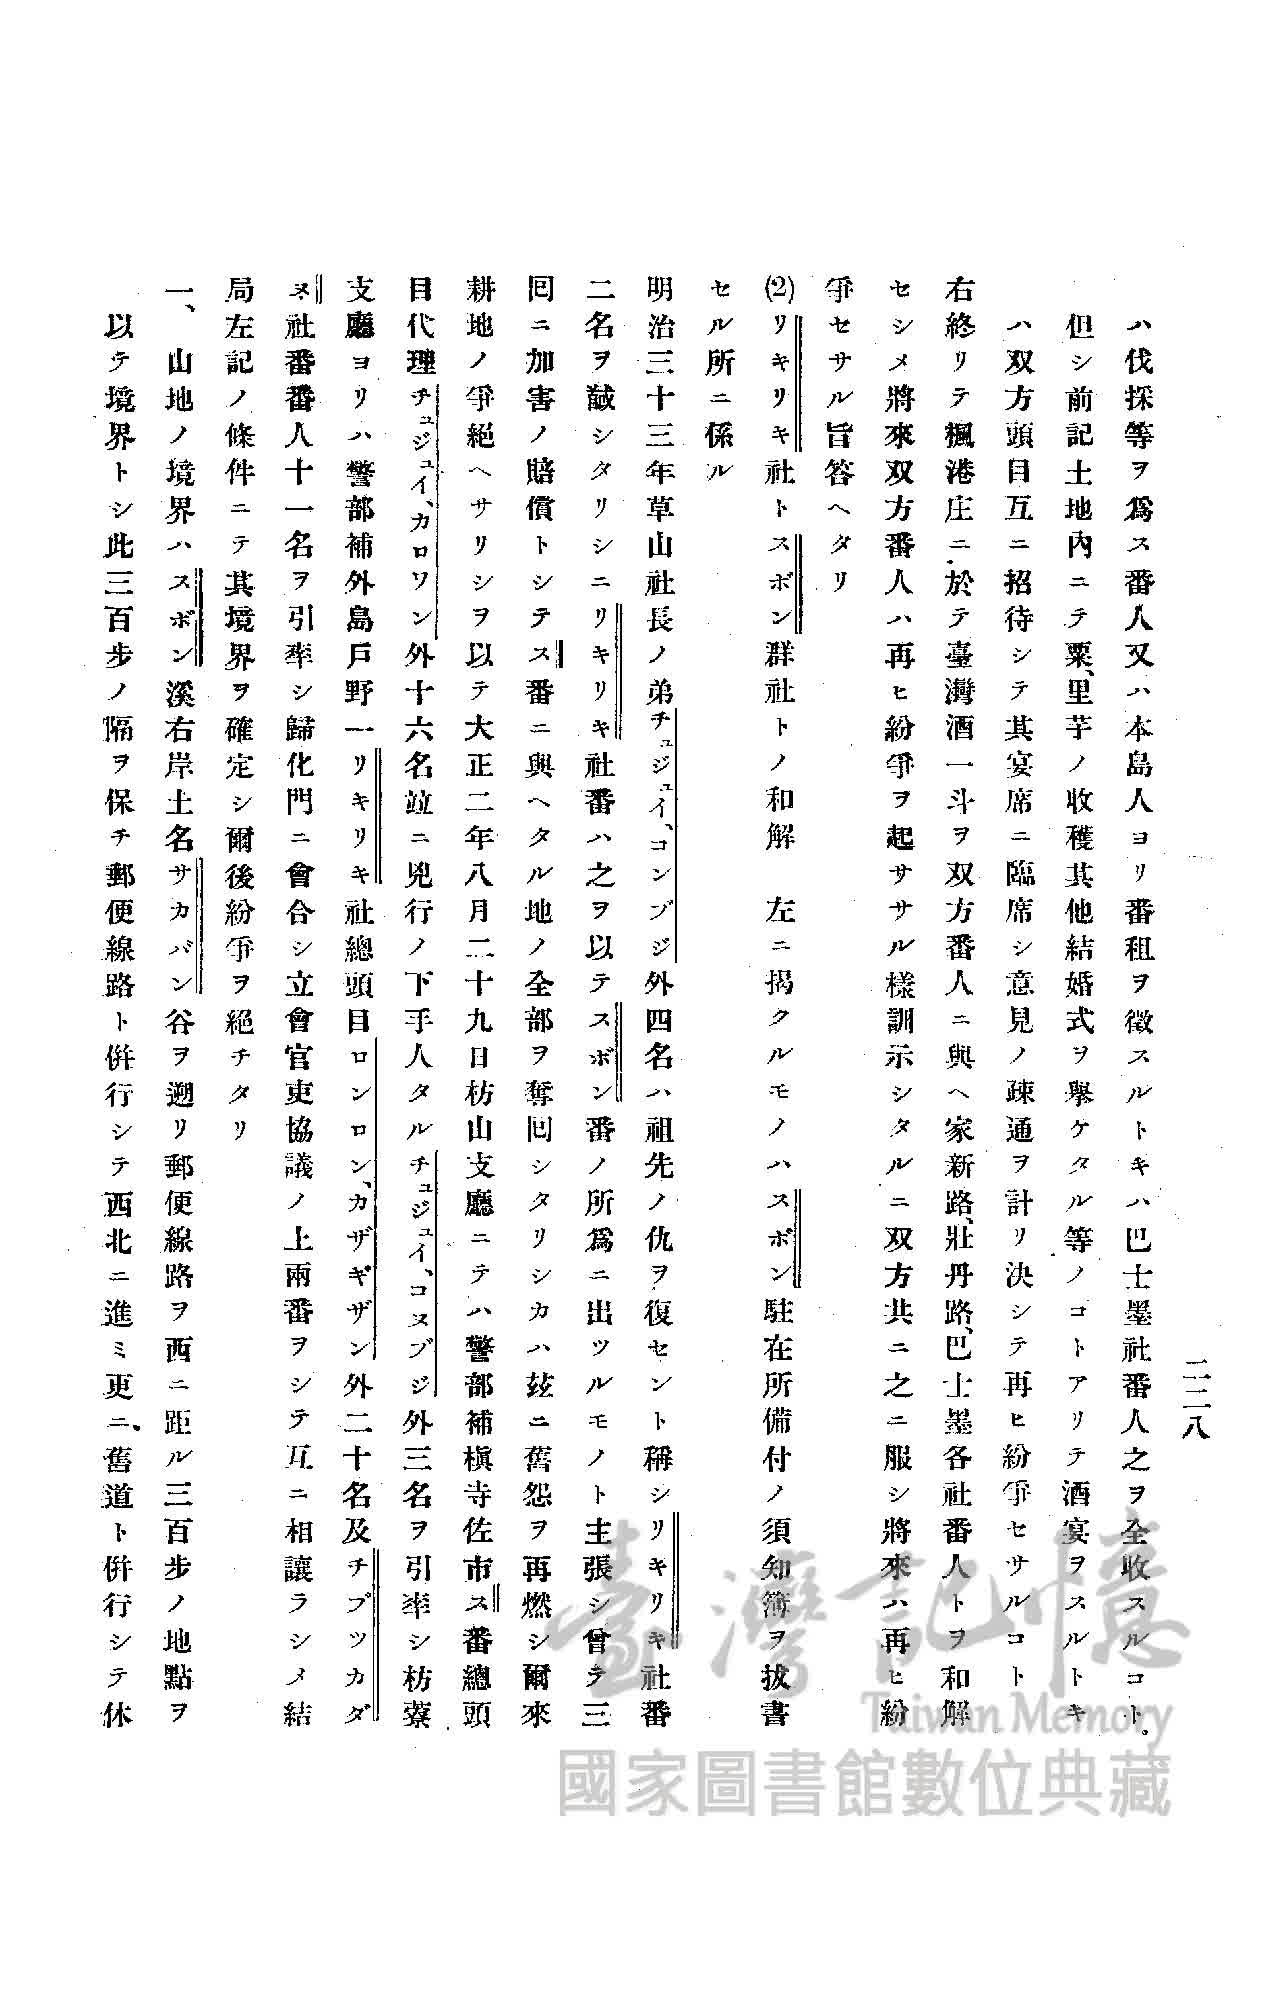 二二八
ハ伐採等ヲ爲ス番人又ハ本島人ヨリ番租ヲ徵スルトキハ巴士墨社番人之ヲ全收スルコト。
但シ前記土地內ニテ粟、里芋ノ收穫其他結婚式ヲ擧ケタル等ノコトアリテ酒宴ヲスルトキ
ハ双方頭目互ニ招待シテ其宴席ニ臨席シ意見ノ疎通ヲ計リ決シテ再ヒ紛爭セサルコト
右終リテ楓港庄ニ於テ臺灣酒一斗ヲ双方番人ニ與ヘ家新路、壯丹路、巴士墨各社番人トヲ和解
セシメ將來双方番人ハ再ヒ紛爭ヲ起ササル樣訓示シタルニ双方共ニ之ニ服シ將來ハ再ヒ紛
爭セサル旨答ヘタリ
(2)リキリキ社トスボン群社トノ和解　左ニ揭クルモノハスボン駐在所備付ノ須知簿ヲ拔書
セル所ニ係ル
明治三十三年草山社長ノ弟チュジュイ、コンブジ外四名ハ祖先ノ仇ヲ復セント稱シリキリキ社番
二名ヲ馘シタリシニリキリキ社番ハ之ヲ以テスボン番ノ所爲ニ出ツルモノト主張シ曾テ三
囘ニ加害ノ賠償トシテス番ニ與ヘタル地ノ全部ヲ奪囘シタリシカハ玆ニ舊怨ヲ再燃シ爾來
耕地ノ爭絕ヘサリシヲ以テ大正二年八月二十九日枋山支廳ニテハ警部補槇寺佐市ス番總頭
目代理チュジュイ、カロワン外十六名竝ニ兇行ノ下手人タルチュジュイ、コヌブジ外三名ヲ引率シ枋藔
支廳ヨリハ警部補外島戸野一リキリキ社總頭目ロンロン、カザギザン外二十名及チブツカダ
ヌ社番番人十一名ヲ引率シ歸化門ニ會合シ立會官吏協議ノ上兩番ヲシテ互ニ相讓ラシメ結
局左記ノ條件ニテ其境界ヲ確定シ爾後紛爭ヲ絕チタリ
一、山地ノ境界ハスボン溪右岸土名サカバン谷ヲ遡リ郵便線路ヲ西ニ距ル三百步ノ地點ヲ
以テ境界トシ此三百步ノ隔ヲ保チ郵便線路ト倂行シテ西北ニ進ミ更ニ、舊道ト倂行シテ休
臺灣記憶
Taiwan Memory
國家圖書館數位典藏